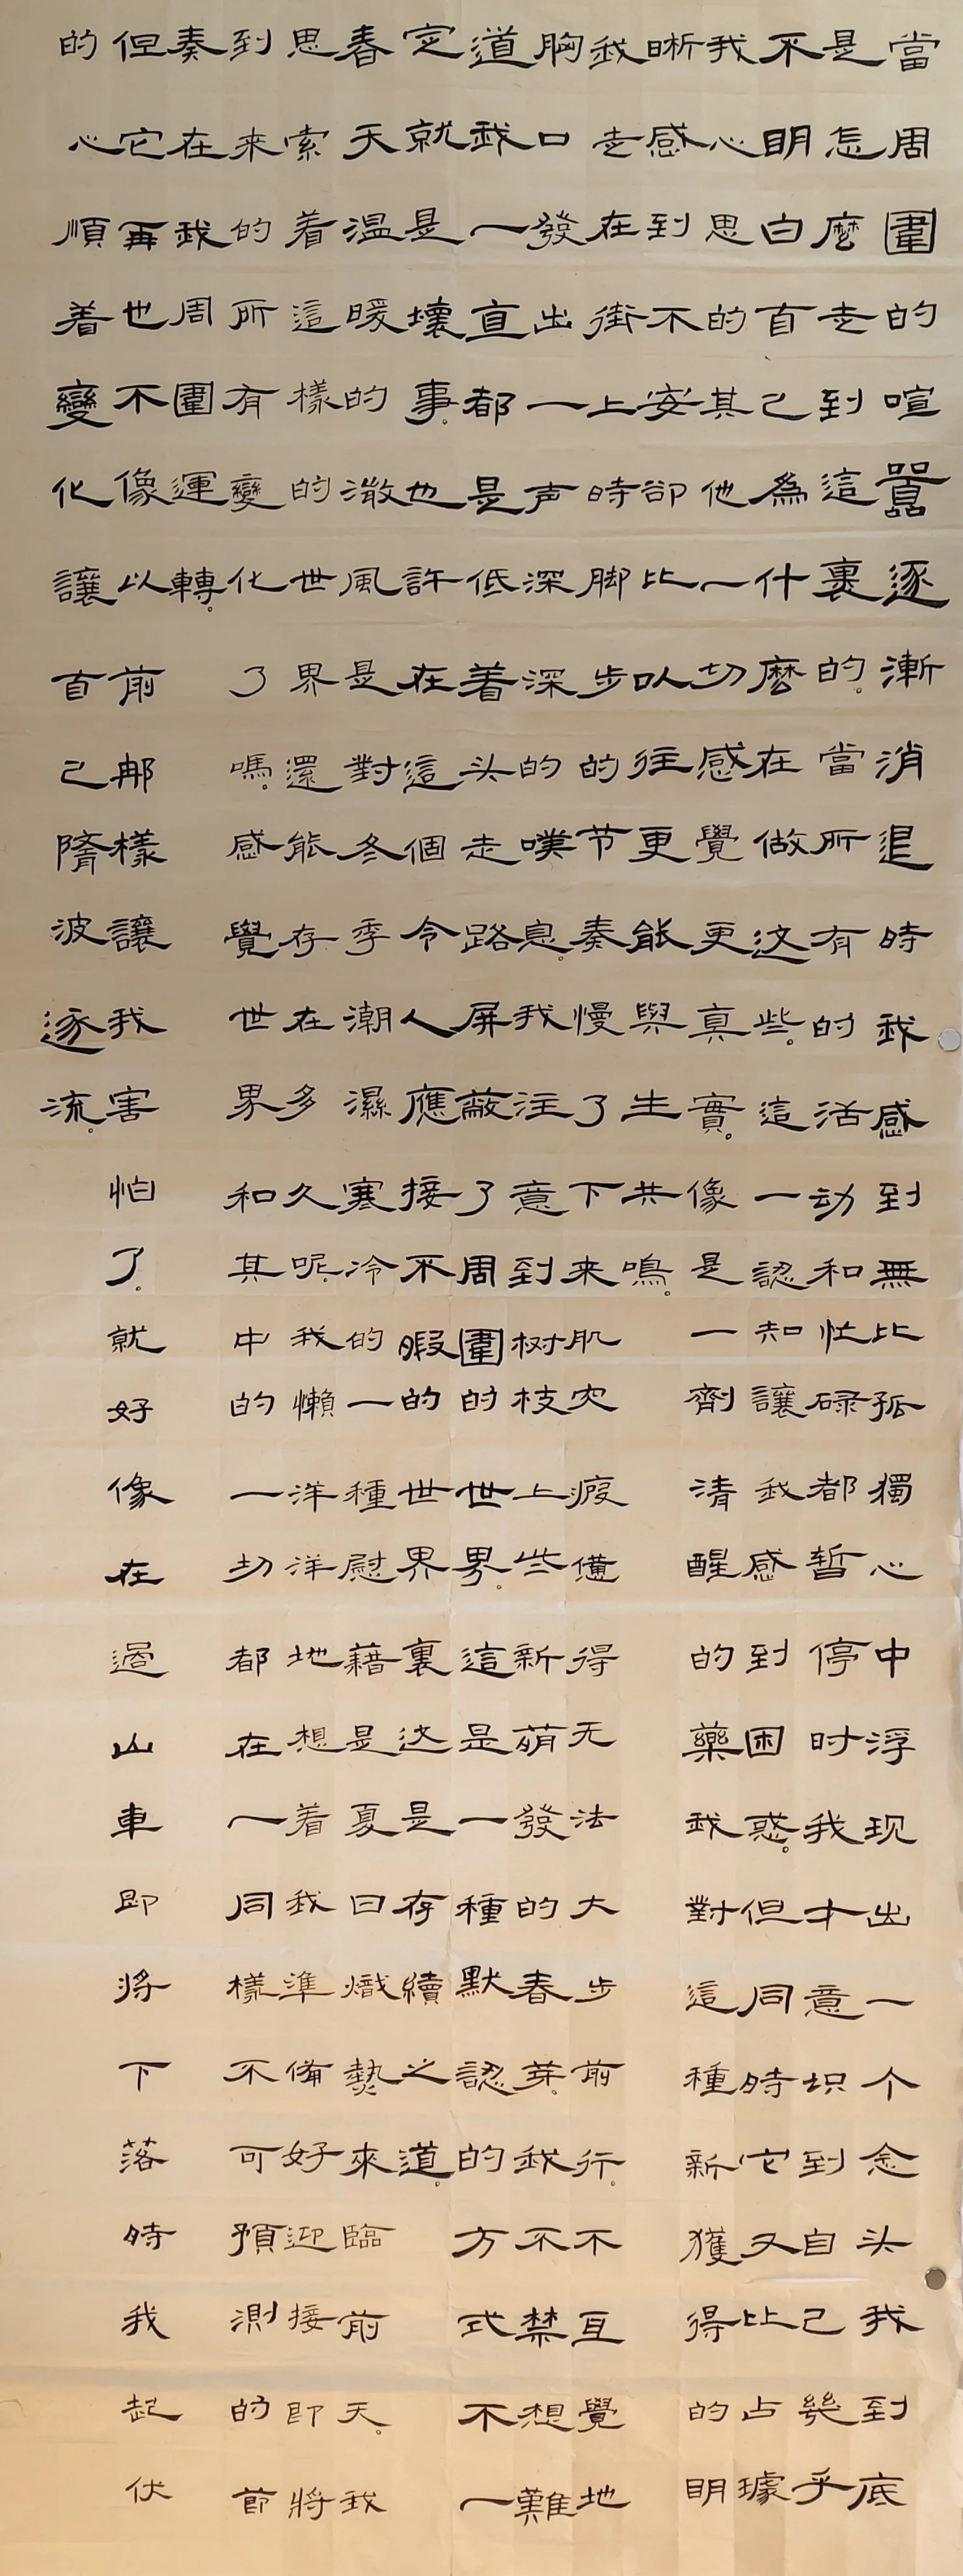 當周圍的喧囂逐漸消退時我感到無比孤獨心中浮现出一个念头我到底
是怎麼走到這裏的。當所有的活动和忙碌都暫停时我才意识到自己幾乎
不明白自己為什麼在做这些。這一認知讓我感到困惑。但同時它又比占據
我心思的其他一切感覺更真實。像是一劑清醒的藥我對這種新獲得的明
晰感到不安卻比以往更能與生共鳴。
我走在街上時脚步的节奏慢了下来肌肉疲憊得无法大步前行。不自覺地
胸口發出一声深深的嘆息。我注意到树枝上些新萌發的春芽。我不禁想難
道我一直都是低着头走路屏蔽了周圍的世界。這是一種默認的方式不一
定就是壞事。也許在這個令人應接不暇的世界裏这是存續之道。
春天温暖的微風是對冬季潮濕寒冷的一種慰藉是夏日熾熱來臨前天。我
思索着這樣的世界還能存在多久呢我懶洋洋地想着我準備好迎接即將
到来的所有變化了嗎。感覺世界和其中的一切都在一同樣不可預測的節
奏在我周圍運轉。
但它再也不像以前那樣讓我害怕了。就好像在過山車即將下落時我起伏
的心順着變化讓自己隋波逐流。